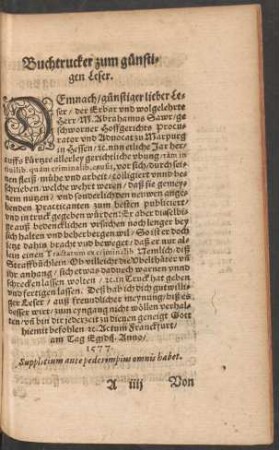 Buchtrucker zum günsti-
gen Leser.
DEmnach/günstiger lieber Le-
ser/ der Erbar und wolgelehrte
Herr M. Abrahamus Sawr/ge-
schworner Hoffgerichts Procu-
rator vnd Advocat zu Marpurg
in Hessen/ ꝛc. nun etliche Jar her/
auffs kürtze allerley gerichtliche vbung/ tàm in
ciuilib. quàm criminalib. causis, vor sich/ durch sei-
nen fleiß/ mühe vnd arbeit/ colligirt vnnd be-
schrieben/ welche wehrt weren/ daß sie gemey-
nem nutzen/ vnd sonderlich den newen ange-
henden Practicanten zum besten publiciert/
vnd in truck gegeben würden: Hat aber dieselbi-
ge auß bedencklichen vrsachen noch lenger bey
sich halten vnd beherbergen wil/ So ist er doch
jetzt dahin bracht vnd beweget/ daß er nur al-
lein einen Tractatum ex criminalib. Nemlich/ diß
Straffbüchlein: Ob vielleicht die Vbelthäter vñ
ihr anhang/ sich etwas dadurch warnen vnnd
schrecken lassen wolten/ ꝛc. in Truck hat geben
vnd fertigen lassen. Deß hab ich dich gutwilli-
ger Leser/ auß freundlicher meynung/ biß es
besser wirt/ zum eyngang nicht wöllen verhal-
ten/ vñ bin dir jederzeit zu dienen geneigt Gott
hiemit befohlen ꝛc. Actum Franckfurt/
am Tag Egidij. Anno/
1577.
Supplicium ante pedes impius omnis habet.
A iiij Von